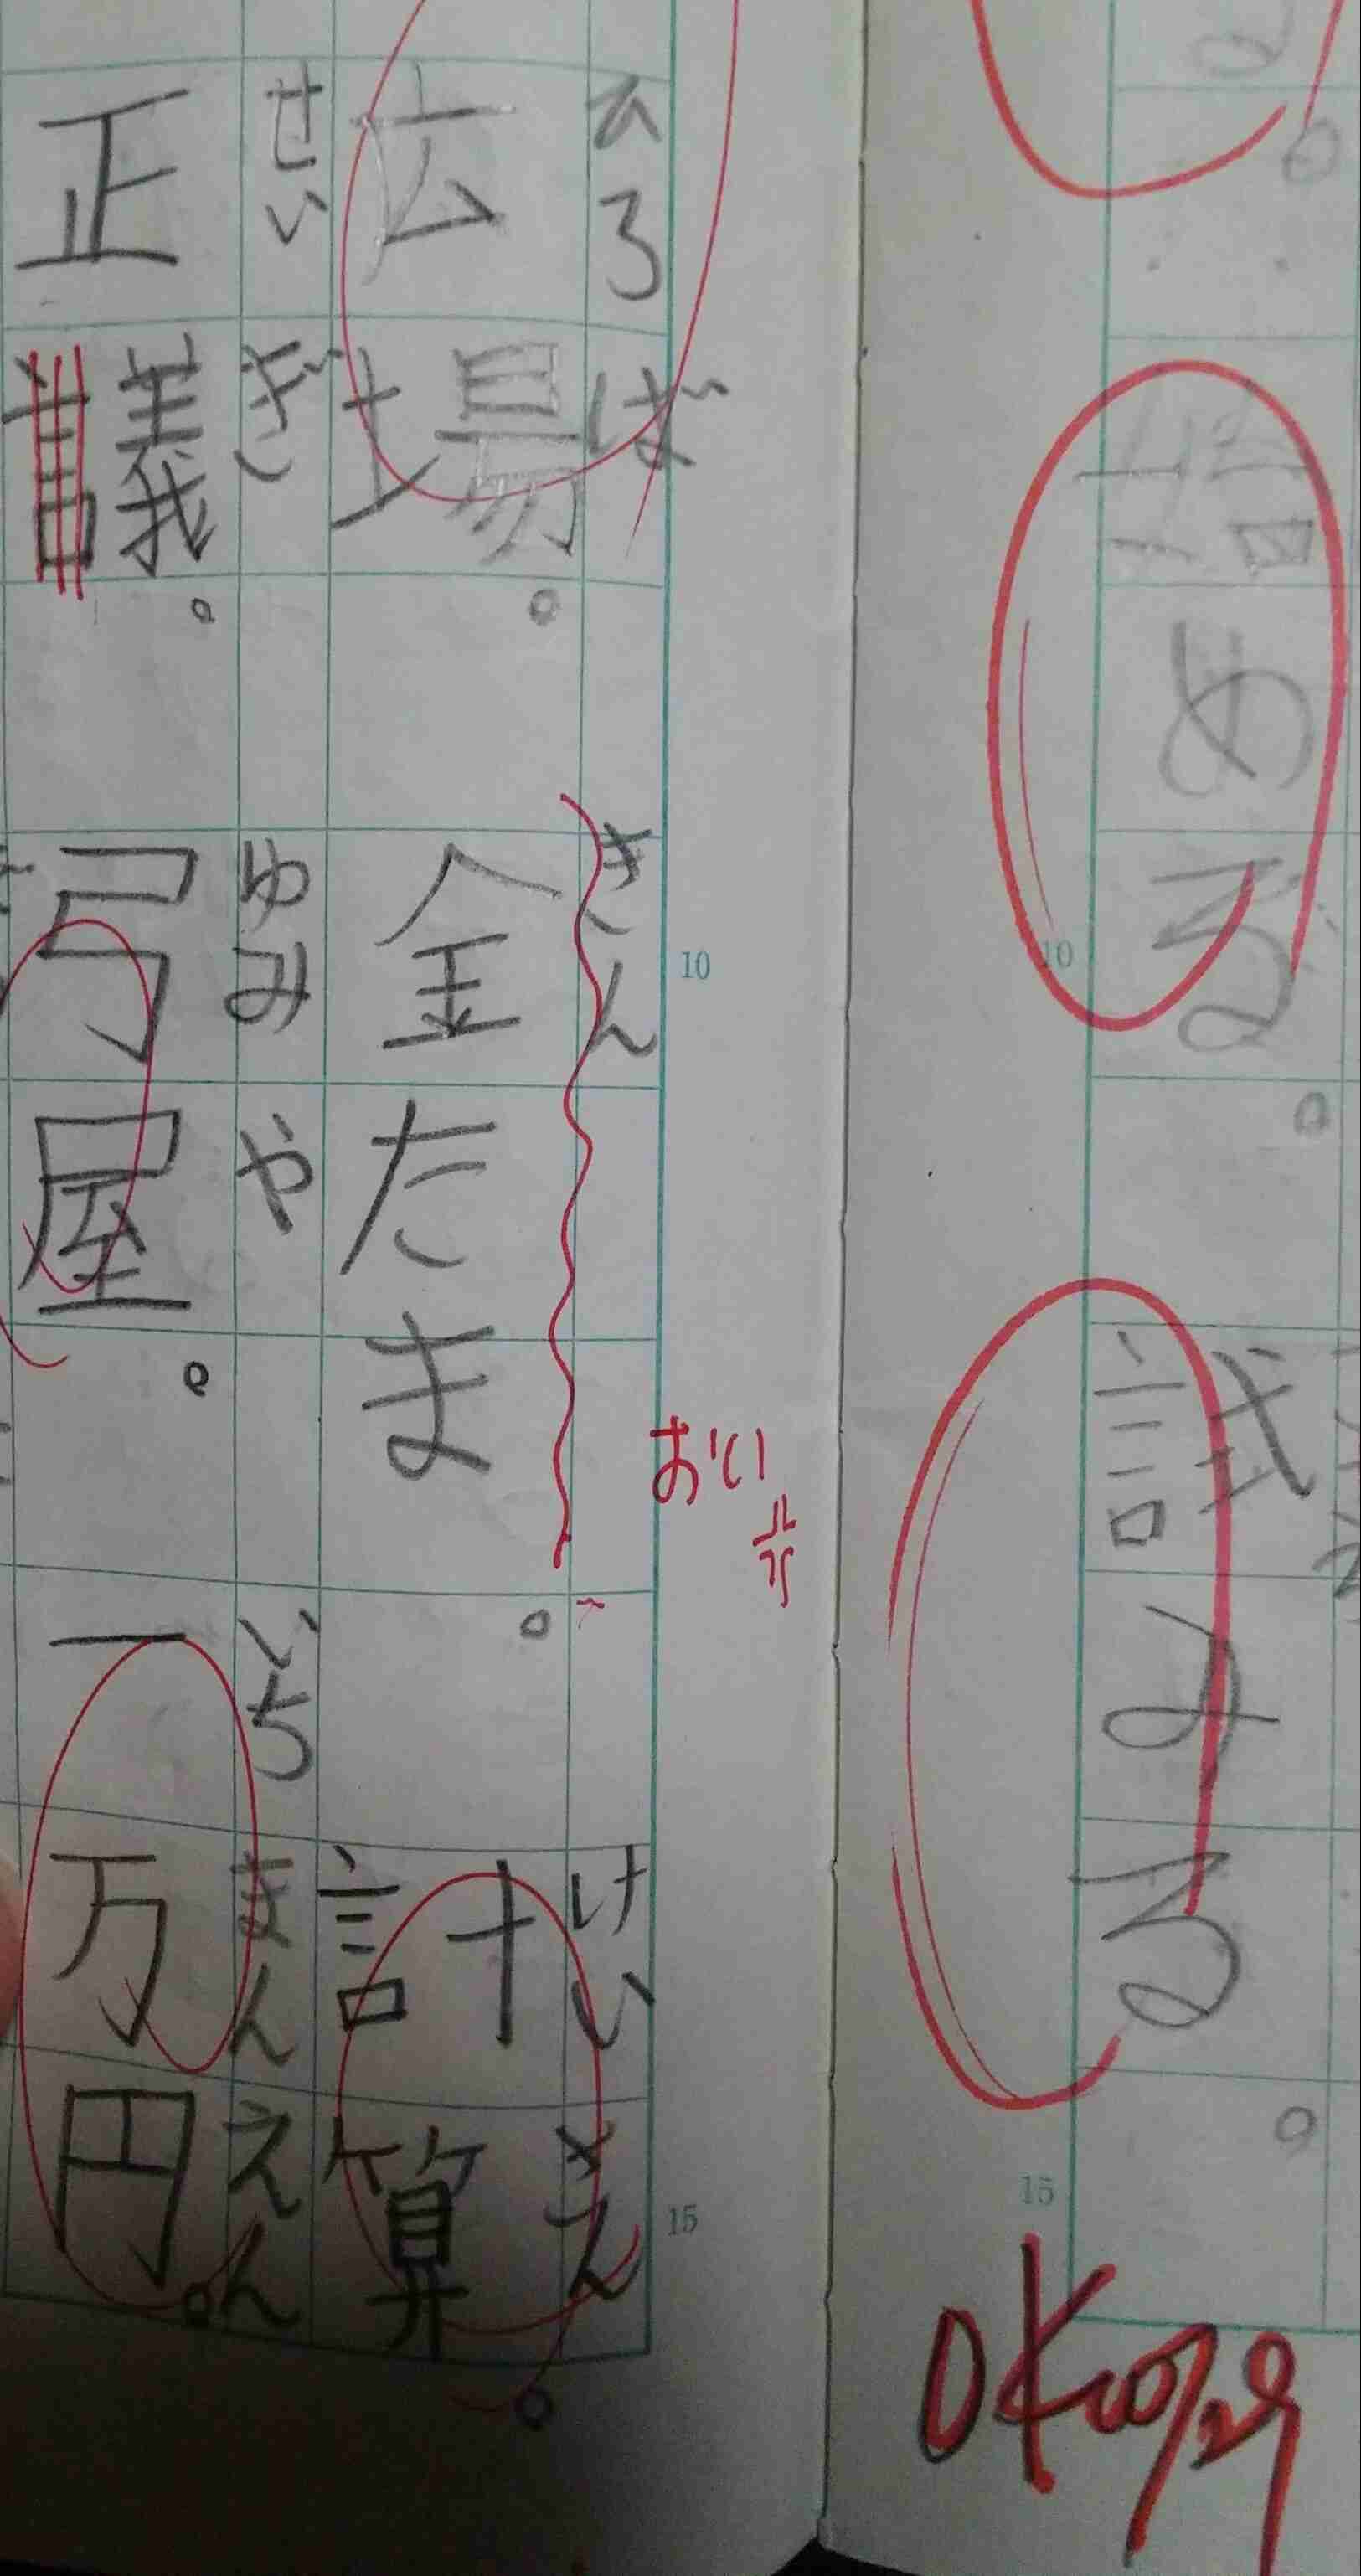 詰める。
試みる。
OK
15
10
おい
ひろば きん けいさん
広場。 金たま。 計算。
10
15
せいぎ ゆみや いちまんえん
正議。 弓屋。 一万円。